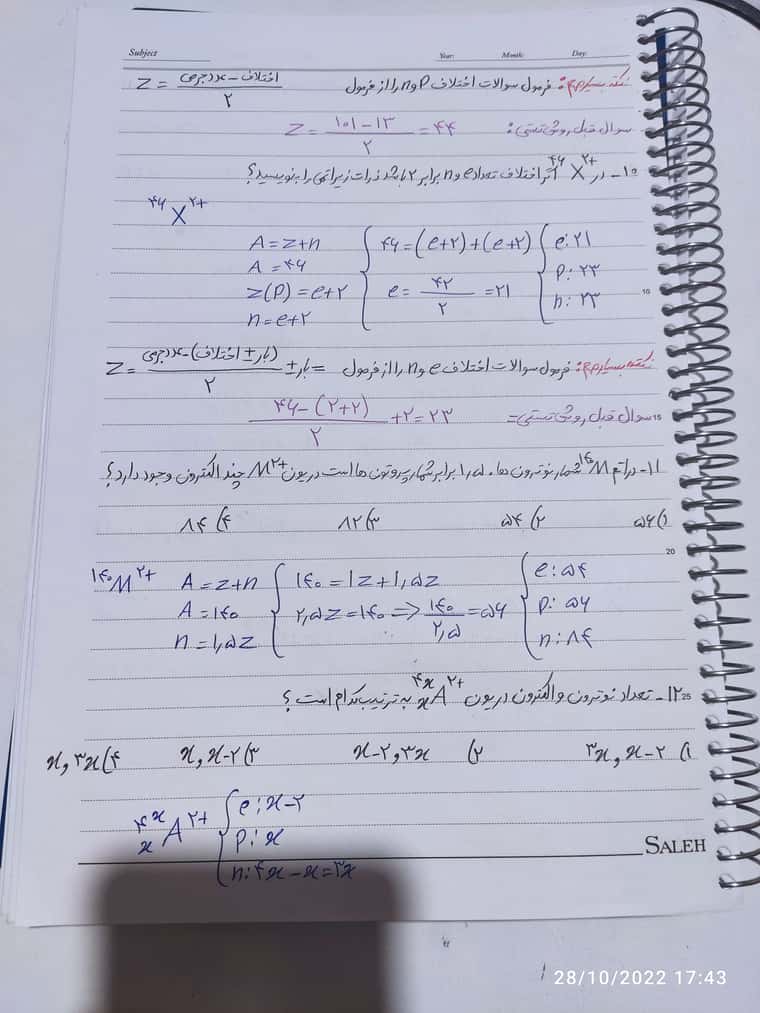 Subject
Year: Month: Day:
نکته بسیار مهم: فرمول سوالات اختلاف p و n را از فرمول Z = اختلاف - عدد جرمی / ۲
سوال قبل روش تستی: Z = ۱۰۱ - ۱۳ / ۲ = ۴۴
۱۰- در ⁴⁶X²⁺ اگر اختلاف تعداد e و n برابر ۲ باشد ذرات زیراتمی را بنویسید؟
⁴⁶X²⁺
A = Z + n
A = ۴۶
Z(P) = e + ۲
n = e + ۲
۴۶ = (e + ۲) + (e + ۲)
e = ۴۲ / ۲ = ۲۱
e: ۲۱
p: ۲۳
n: ۲۳
10
نکته بسیار مهم: فرمول سوالات اختلاف e و n را از فرمول Z = (بار ± اختلاف) - عدد جرمی / ۲ ± بار =
15 سوال قبل روش تستی = ۴۶ - (۲+۲) / ۲ + ۲ = ۲۳
۱۱- در اتم ¹⁴⁰M شمار نوترون ها، ۱,۵ برابر شمار پروتون ها است در یون M²⁺ چند الکترون وجود دارد؟
۱) ۵۶ ۲) ۵۴ ۳) ۸۲ ۴) ۸۴
20
¹⁴⁰M²⁺
A = Z + n
A = ۱۴۰
n = ۱,۵Z
۱۴۰ = ۱Z + ۱,۵Z
۲,۵Z = ۱۴۰ => ۱۴۰ / ۲,۵ = ۵۶
e: ۵۴
p: ۵۶
n: ۸۴
25 ۱۲- تعداد نوترون و الکترون در یون ⁴ˣₓA²⁺ به ترتیب کدام است؟
۱) ۳x , x-۲ ۲) x-۲ , ۳x ۳) x , x-۲ ۴) x , ۳x
⁴ˣₓA²⁺
e: x-۲
p: x
n: ۴x - x = ۳x
SALEH
28/10/2022 17:43